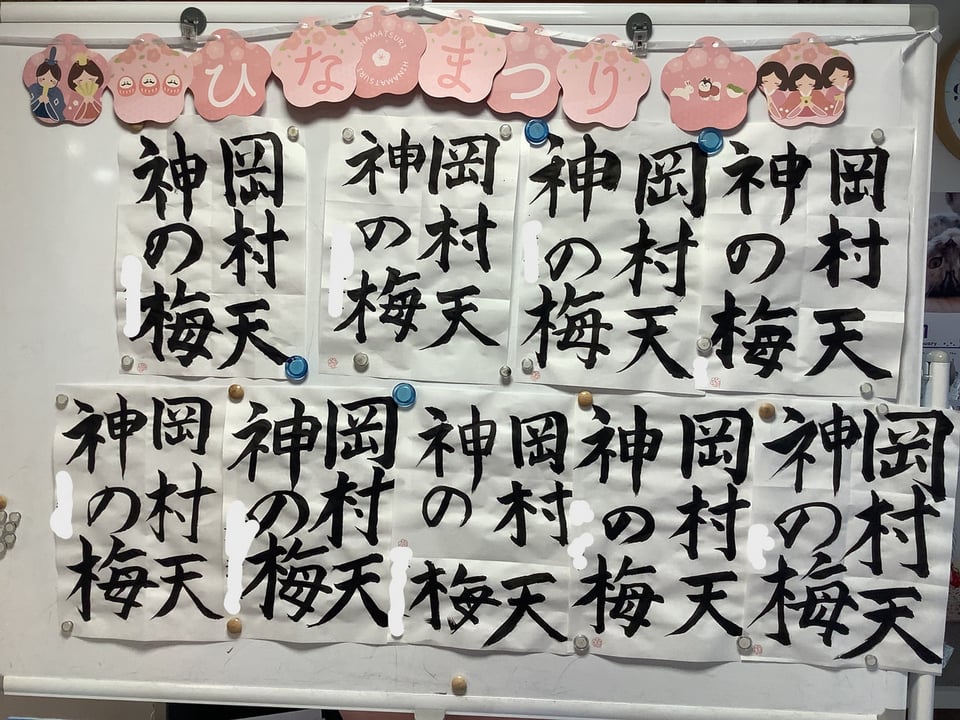 ひなまつり
HINAMATSURI HINAMATSURI
岡村天
神の梅
岡村天
神の梅
岡村天
神の梅
岡村天
神の梅
岡村天
神の梅
岡村天
神の梅
岡村天
神の梅
岡村天
神の梅
岡村天
神の梅